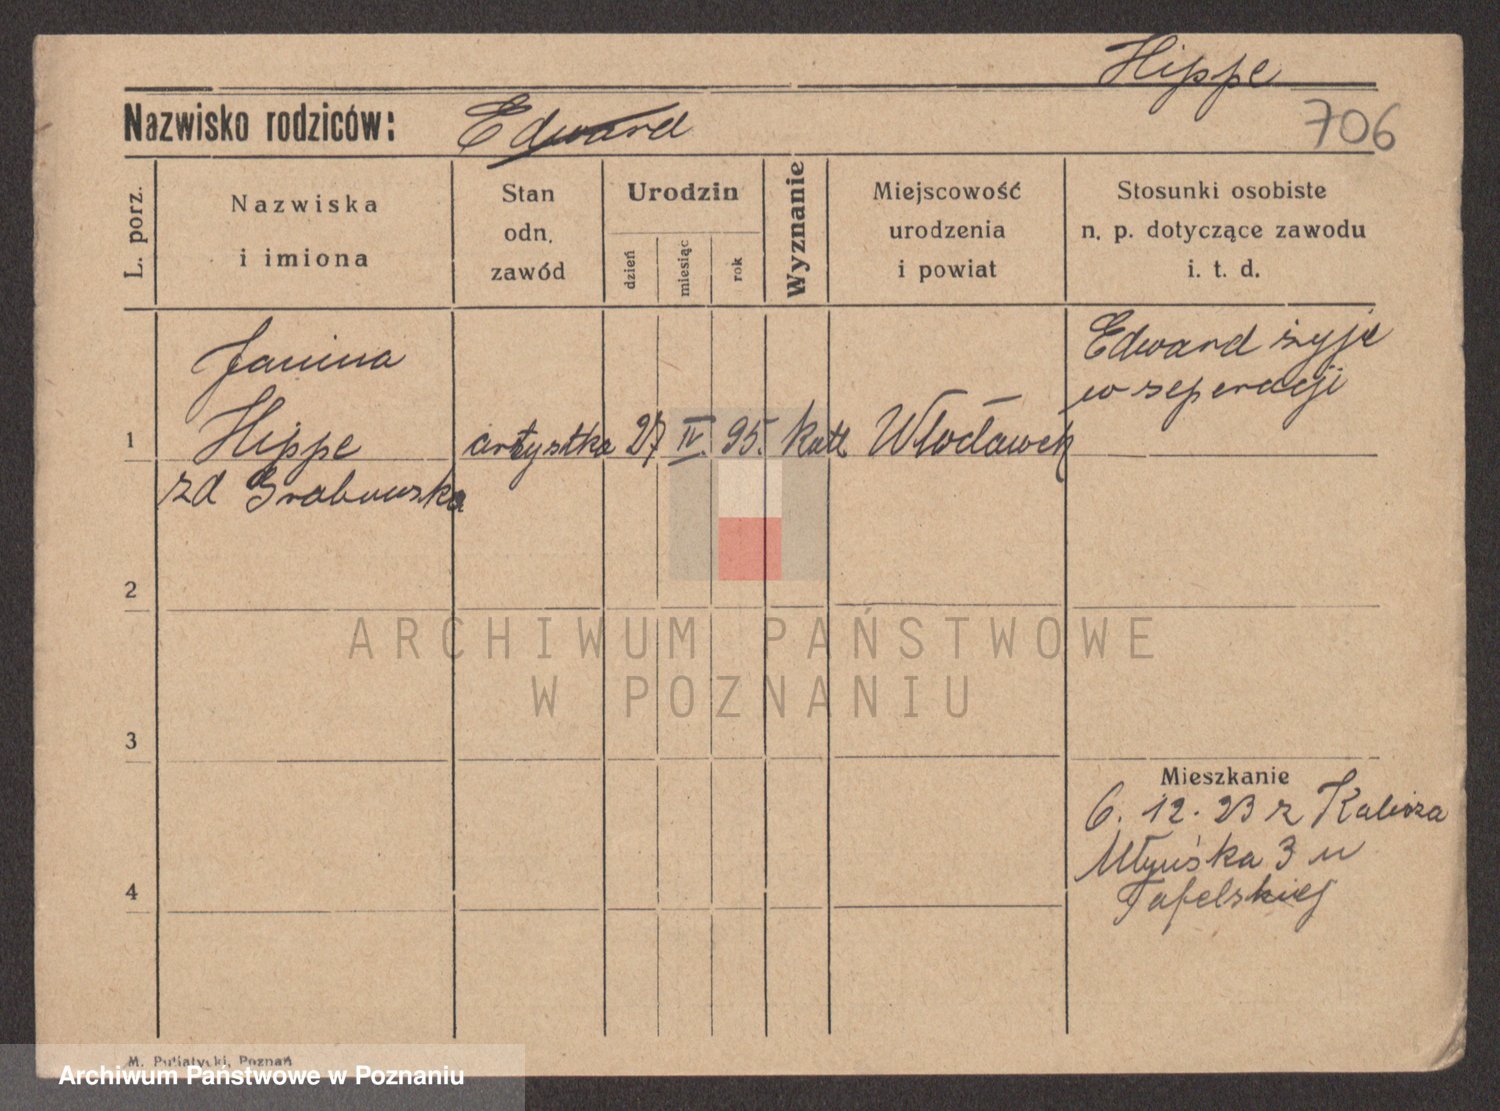 Hippe
706
Nazwisko rodziców: Edward
L. porz.
Nazwiska
i imiona
Stan
odn.
zawód
Urodzin
dzień
miesiąc
rok
Wyznanie
Miejscowość
urodzenia
i powiat
Stosunki osobiste
n. p. dotyczące zawodu
i. t. d.
Edward żyje
w seperacji
Janina
1 Hippe artystka 27 IV. 95. katl Włocławek
zd Grabowska
2
ARCHIWUM PAŃSTWOWE
W POZNANIU
3
Mieszkanie
6. 12. 23 z Kalisza
Młyńska 3 u
4 Tafelskiej
M. Putiatycki, Poznań
Archiwum Państwowe w Poznaniu